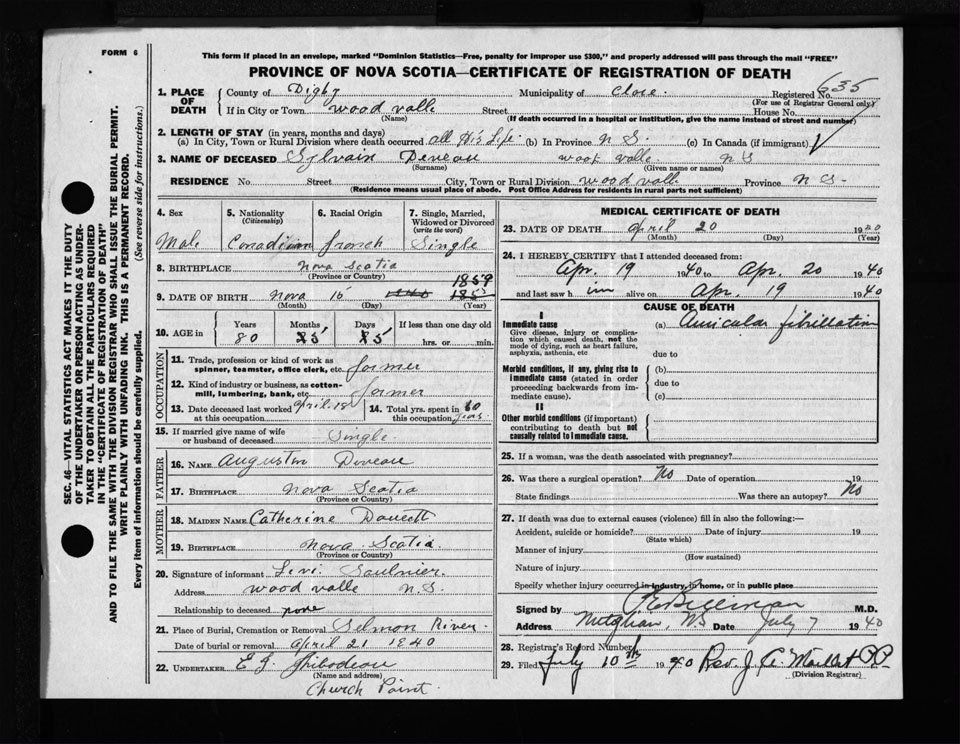 FORM 6
This form if placed in an envelope, marked "Dominion Statistics—Free, penalty for improper use $300," and properly addressed will pass through the mail "FREE"
PROVINCE OF NOVA SCOTIA—CERTIFICATE OF REGISTRATION OF DEATH
1. PLACE OF DEATH { County of Digby Municipality of Clare. Registered No. 635
(For use of Registrar General only)
If in City or Town wood valle Street House No.
(Name) (If death occurred in a hospital or institution, give the name instead of street and number)
2. LENGTH OF STAY (in years, months and days)
(a) In City, Town or Rural Division where death occurred all His Life. (b) In Province N S. (c) In Canada (if immigrant)
3. NAME OF DECEASED Sylvain Deveau wood valle. N S
(Surname) (Given name or names)
RESIDENCE No. Street City, Town or Rural Division wood valle Province N S-
(Residence means usual place of abode. Post Office Address for residents in rural parts not sufficient)
4. Sex 5. Nationality (Citizenship) 6. Racial Origin 7. Single, Married, Widowed or Divorced (write the word)
Male Canadian french Single
8. BIRTHPLACE Nova Scotia
(Province or Country)
1859
9. DATE OF BIRTH Nova 15 1940 185
(Month) (Day) (Year)
10. AGE in { Years Months Days If less than one day old
80 5 5 hrs. or min.
OCCUPATION
11. Trade, profession or kind of work as spinner, teamster, office clerk, etc. farmer
12. Kind of industry or business, as cotton-mill, lumbering, bank, etc. farmer
13. Date deceased last worked at this occupation April. 18 14. Total yrs. spent in this occupation 60 years.
15. If married give name of wife or husband of deceased Single.
FATHER
16. NAME Augustin Deveau
17. BIRTHPLACE Nova Scotia
(Province or Country)
MOTHER
18. MAIDEN NAME Catherine Doucett
19. BIRTHPLACE Nova Scotia.
(Province or Country)
20. Signature of informant Levi Saulnier.
Address wood valle N.S.
Relationship to deceased none
21. Place of Burial, Cremation or Removal Selmon River.
Date of burial or removal April 21 1940
22. UNDERTAKER E J Thibodeau
(Name and address)
Church Point.
MEDICAL CERTIFICATE OF DEATH
23. DATE OF DEATH April 20 1940
(Month) (Day) (Year)
24. I HEREBY CERTIFY that I attended deceased from:
Apr. 19 1940 to Apr. 20 1940
and last saw h im alive on Apr. 19 1940
CAUSE OF DEATH
I
Immediate cause (a) Auricular fibrillation
Give disease, injury or complication which caused death, not the mode of dying, such as heart failure, asphyxia, asthenia, etc
due to
Morbid conditions, if any, giving rise to immediate cause (stated in order proceeding backwards from immediate cause). (b)
due to
(c)
II
Other morbid conditions (if important) contributing to death but not causally related to immediate cause.
25. If a woman, was the death associated with pregnancy?
26. Was there a surgical operation? No Date of operation 19
State findings Was there an autopsy? No
27. If death was due to external causes (violence) fill in also the following:—
Accident, suicide or homicide? Date of injury 19
(State which)
Manner of injury
(How sustained)
Nature of injury
Specify whether injury occurred in industry, in home, or in public place
Signed by M.D.
Address N.S Date July 7 1940
28. Registrar's Record Number
29. Filed July 10th 1940 Rev. J. A. P.P.
(Division Registrar)
SEC. 46—VITAL STATISTICS ACT MAKES IT THE DUTY
OF THE UNDERTAKER OR PERSON ACTING AS UNDER-
TAKER TO OBTAIN ALL THE PARTICULARS REQUIRED
IN THE "CERTIFICATE OF REGISTRATION OF DEATH"
AND TO FILE THE SAME WITH THE DIVISION REGISTRAR WHO SHALL ISSUE THE BURIAL PERMIT.
WRITE PLAINLY WITH UNFADING INK. THIS IS A PERMANENT RECORD.
Every item of information should be carefully supplied. (See reverse side for instructions.)